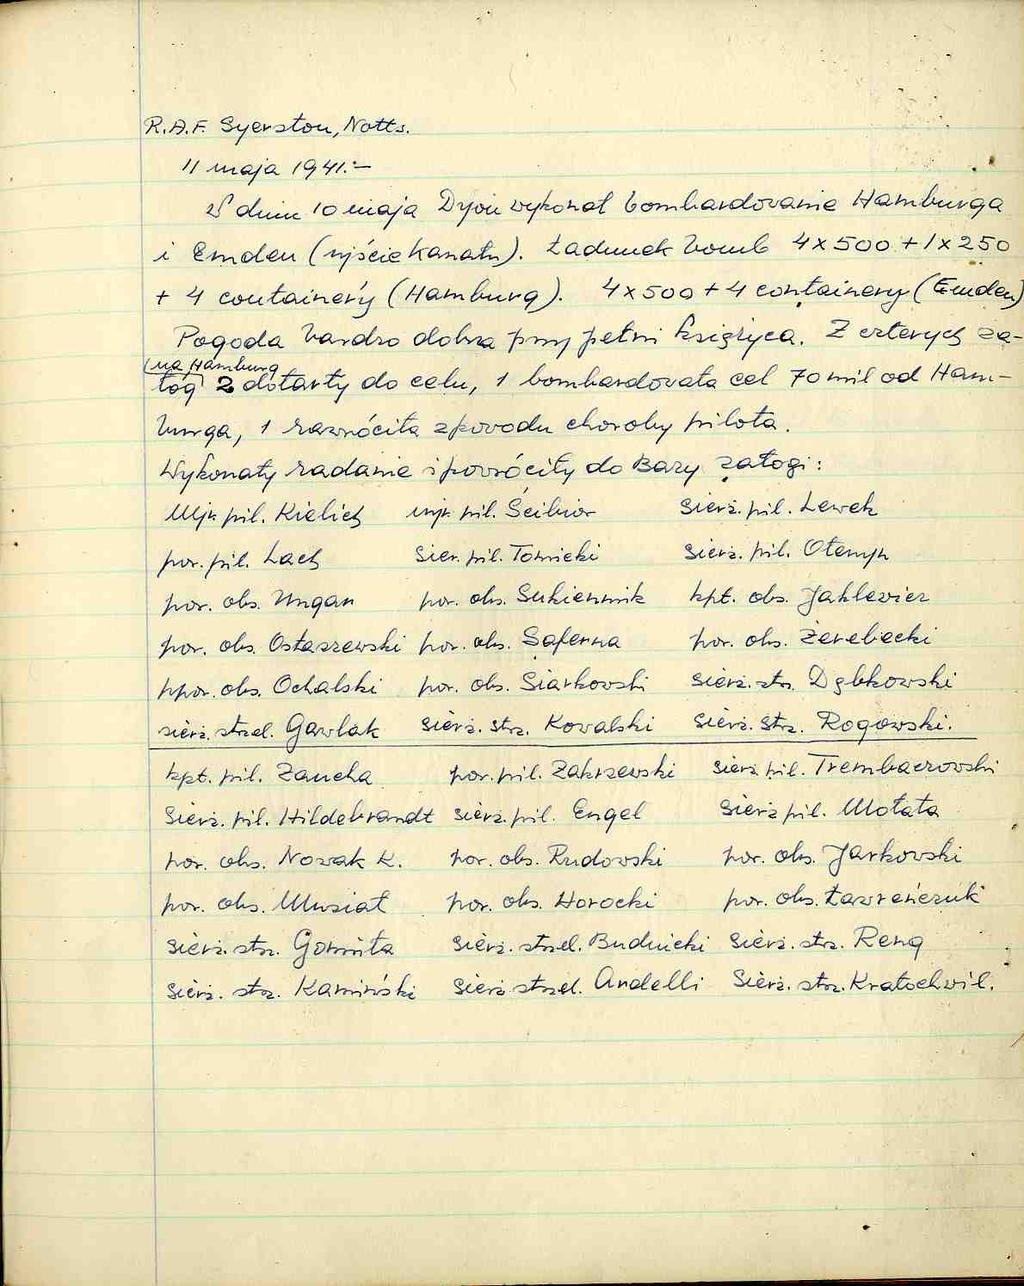 R.A.F. Syerston, Notts.
11 maja 1941.—
W dniu 10 maja Dyon wykonał bombardowanie Hamburga
i Emden (ujście Kanału). Ładunek bomb 4x500 + 1x250
+ 4 containery (Hamburg). 4x500 + 4 containery (Emden)
Pogoda bardzo dobra przy pełni księżyca. Z czterech za-
(na Hamburg)
łóg 2 dotarły do celu, 1 bombardowała cel 70 mil od Ham-
burga, 1 zawróciła z powodu choroby pilota.
Wykonały zadanie i powróciły do Bazy załogi:
Mjr pil. Kielich mjr. pil. Ścibior sierż. pil. Lewek
por. pil. Lach sier. pil. Tomicki sierż. pil. Otemyk
por. obs. Ungar por. obs. Sukiennik kpt. obs. Jahlewicz
por. obs. Ostaszewski por. obs. Saferna por. obs. Żerebecki
ppor. obs. Ochalski por. obs. Siarkowski sierż. str. Dębkowski
sierż. strzel. Gawlak sierż. strz. Kowalski sierż. strz. Rogowski.
kpt. pil. Zaucha por. pil. Zakrzewski sierż. pil. Trembaczowski
sierż. pil. Hildebrandt sierż. pil. Engel sierż pil. Mołata
por. obs. Nowak K. por. obs. Rudowski por. obs. Jarkowski
por. obs. Musiał por. obs. Horocki por. obs. Ławreńczuk
sierż. strz. Gomuła sierż. strzel. Budnicki sierż. strz. Reng
sierż. strz. Kamiński sierż strzel. Andelli sierż. strz. Kratochwil.